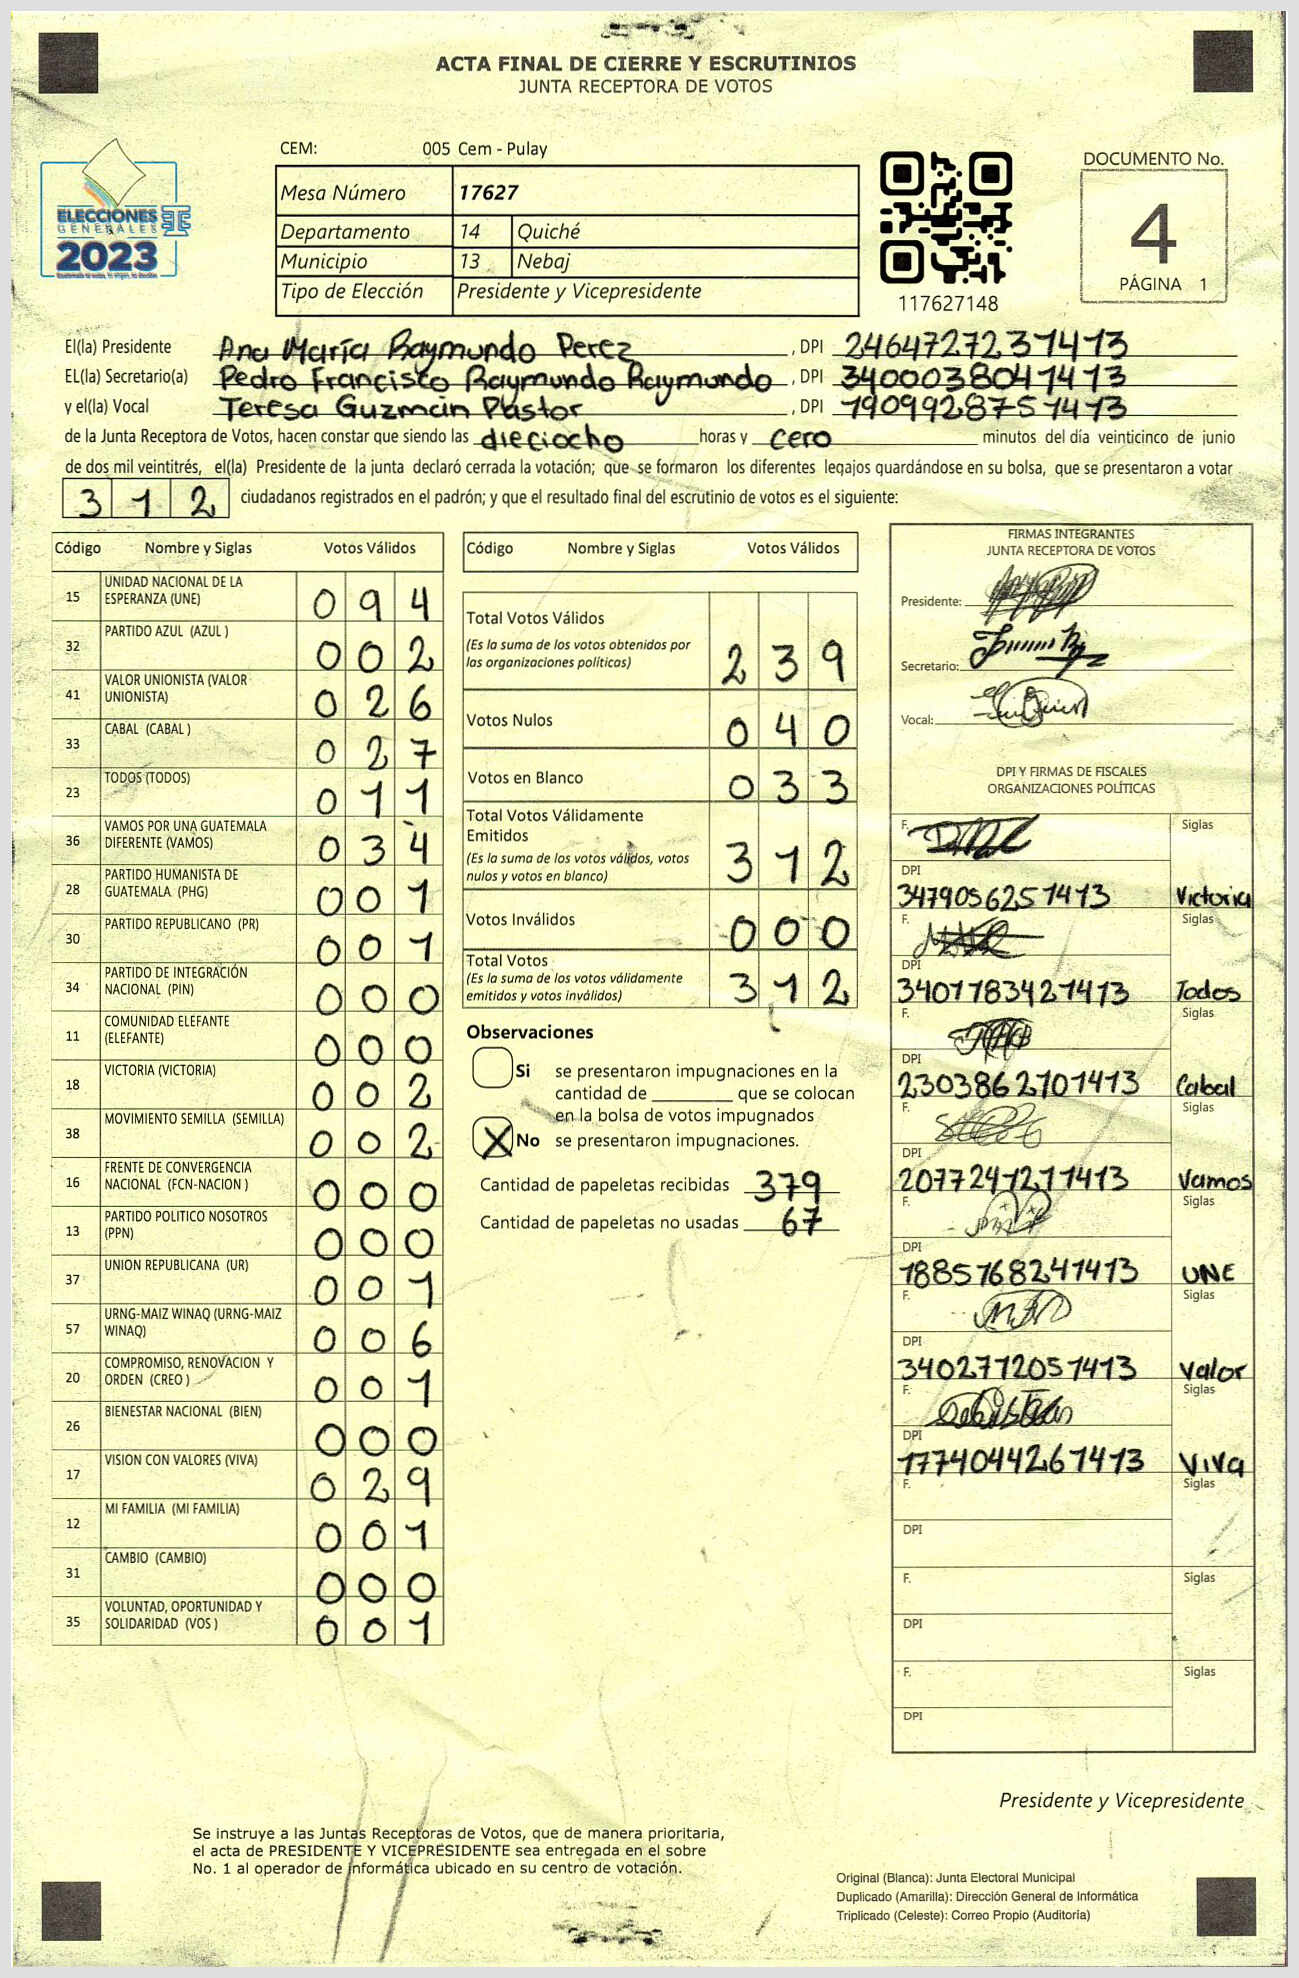 ACTA FINAL DE CIERRE Y ESCRUTINIOS
JUNTA RECEPTORA DE VOTOS
ELECCIONES
GENERALES
2023
CEM: 005 Cem - Pulay
Mesa Número 17627
Departamento 14 Quiché
Municipio 13 Nebaj
Tipo de Elección Presidente y Vicepresidente
117627148
DOCUMENTO No.
4
PÁGINA 1
El(la) Presidente Ana María Raymundo Perez, DPI 2464727231413
EL(la) Secretario(a) Pedro Francisco Raymundo Raymundo, DPI 3400038041413
y el(la) Vocal Teresa Guzmán Pastor, DPI 1909928751413
de la Junta Receptora de Votos, hacen constar que siendo las dieciocho horas y cero minutos del día veinticinco de junio
de dos mil veintitrés, el(la) Presidente de la junta declaró cerrada la votación; que se formaron los diferentes legajos guardándose en su bolsa, que se presentaron a votar
312 ciudadanos registrados en el padrón; y que el resultado final del escrutinio de votos es el siguiente:
Código Nombre y Siglas Votos Válidos
15 UNIDAD NACIONAL DE LA ESPERANZA (UNE) 094
32 PARTIDO AZUL (AZUL ) 002
41 VALOR UNIONISTA (VALOR UNIONISTA) 026
33 CABAL (CABAL ) 027
23 TODOS (TODOS) 011
36 VAMOS POR UNA GUATEMALA DIFERENTE (VAMOS) 034
28 PARTIDO HUMANISTA DE GUATEMALA (PHG) 001
30 PARTIDO REPUBLICANO (PR) 001
34 PARTIDO DE INTEGRACIÓN NACIONAL (PIN) 000
11 COMUNIDAD ELEFANTE (ELEFANTE) 000
18 VICTORIA (VICTORIA) 002
38 MOVIMIENTO SEMILLA (SEMILLA) 002
16 FRENTE DE CONVERGENCIA NACIONAL (FCN-NACION ) 000
13 PARTIDO POLITICO NOSOTROS (PPN) 000
37 UNION REPUBLICANA (UR) 001
57 URNG-MAIZ WINAQ (URNG-MAIZ WINAQ) 006
20 COMPROMISO, RENOVACION Y ORDEN (CREO ) 001
26 BIENESTAR NACIONAL (BIEN) 000
17 VISION CON VALORES (VIVA) 029
12 MI FAMILIA (MI FAMILIA) 001
31 CAMBIO (CAMBIO) 000
35 VOLUNTAD, OPORTUNIDAD Y SOLIDARIDAD (VOS ) 001
Código Nombre y Siglas Votos Válidos
Total Votos Válidos 239
(Es la suma de los votos obtenidos por
las organizaciones políticas)
Votos Nulos 040
Votos en Blanco 033
Total Votos Válidamente
Emitidos 312
(Es la suma de los votos válidos, votos
nulos y votos en blanco)
Votos Inválidos 000
Total Votos 312
(Es la suma de los votos válidamente
emitidos y votos inválidos)
Observaciones
Si se presentaron impugnaciones en la
cantidad de _________ que se colocan
en la bolsa de votos impugnados
X No se presentaron impugnaciones.
Cantidad de papeletas recibidas 379
Cantidad de papeletas no usadas 67
FIRMAS INTEGRANTES
JUNTA RECEPTORA DE VOTOS
Presidente:
Secretario:
Vocal:
DPI Y FIRMAS DE FISCALES
ORGANIZACIONES POLÍTICAS
F. Siglas
DPI
3479056251413 Victoria
F. Siglas
DPI
3401783421413 Todos
F. Siglas
DPI
2303862101413 Cabal
F. Siglas
DPI
2077241211413 Vamos
F. Siglas
DPI
1885768241413 UNE
F. Siglas
DPI
3402712051413 Valor
F. Siglas
DPI
1774044261413 ViVa
F. Siglas
DPI
F. Siglas
DPI
F. Siglas
DPI
Presidente y Vicepresidente
Se instruye a las Juntas Receptoras de Votos, que de manera prioritaria,
el acta de PRESIDENTE Y VICEPRESIDENTE sea entregada en el sobre
No. 1 al operador de informática ubicado en su centro de votación.
Original (Blanca): Junta Electoral Municipal
Duplicado (Amarilla): Dirección General de Informática
Triplicado (Celeste): Correo Propio (Auditoria)